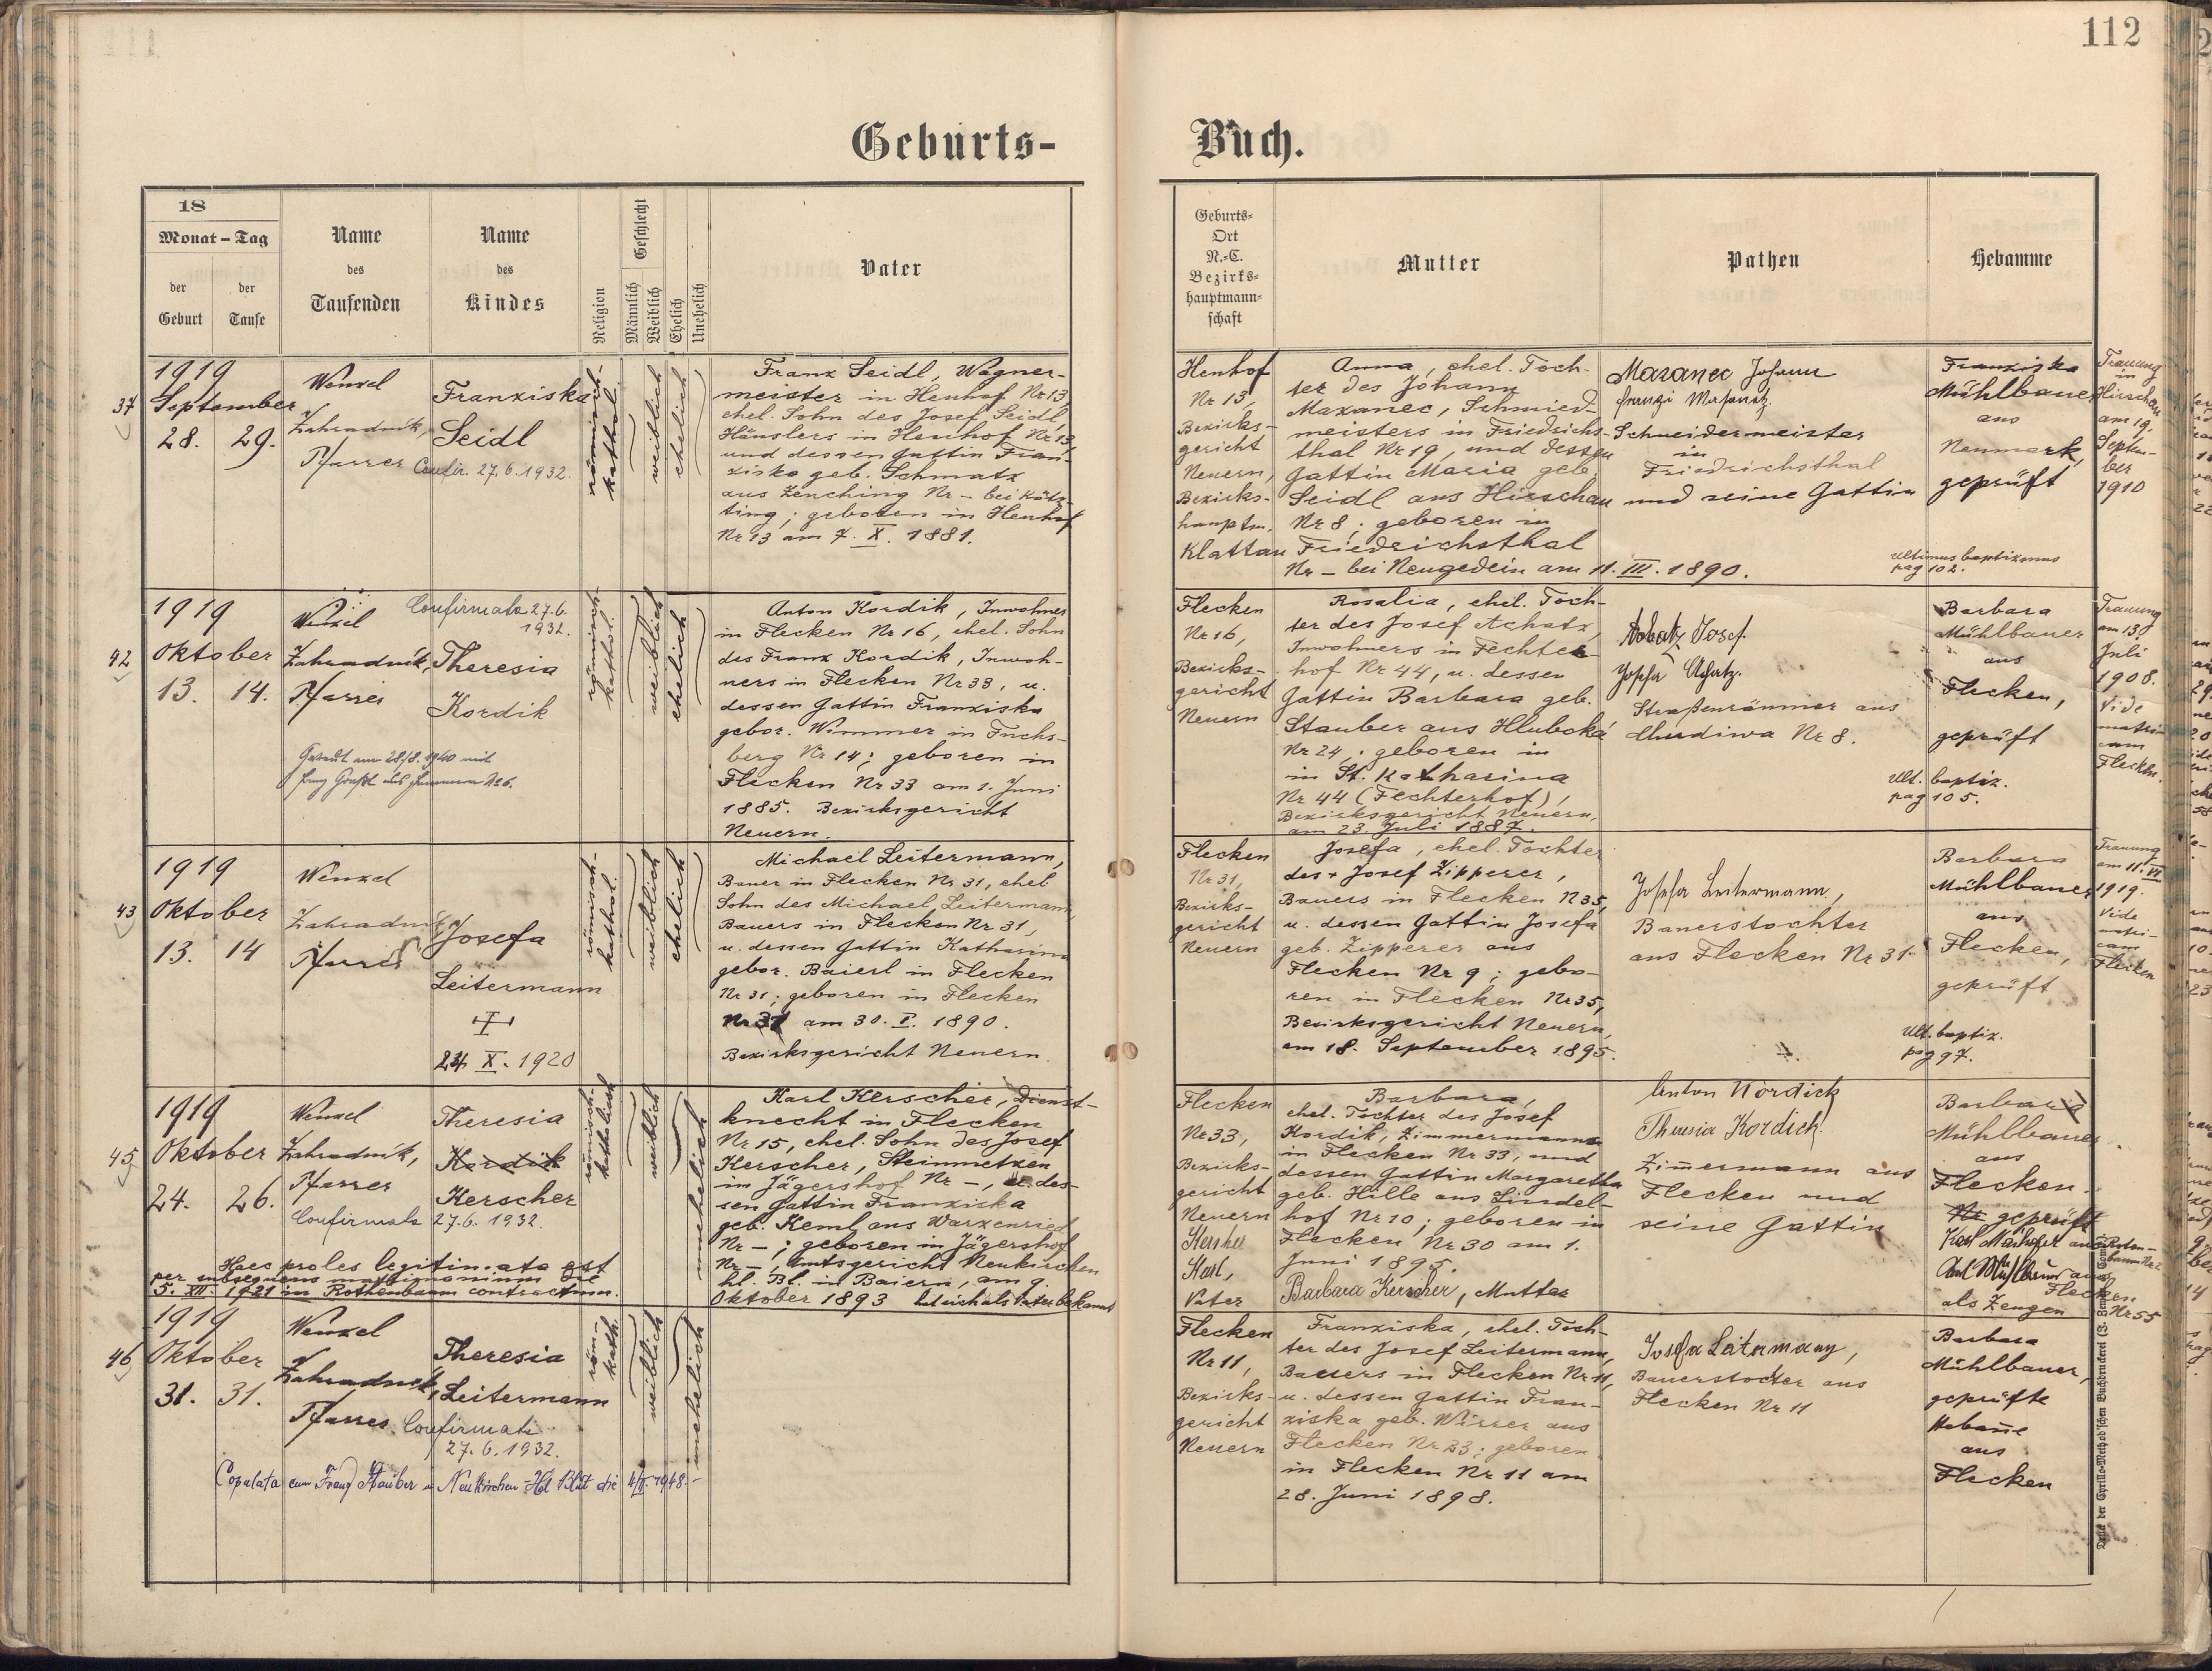 112
Geburts-
Buch.
18
Monat - Tag
der
Geburt
der
Taufe
Name
des
Taufenden
Name
des
Kindes
Religion
Geschlecht
Männlich
Weiblich
Ehelich
Unehelich
Vater
Geburts-
Ort
N.-C.
Bezirks-
hauptmann-
schaft
Mutter
Pathen
Hebamme
37
1919
September
28. 29.
Wenzel
Zahradník,
Pfarrer
Franziska
Seidl
Confir. 27.6.1932.
römisch-
kathol.
weiblich
ehelich
Franz Seidl, Wagner-
meister in Henhof Nr 13,
ehel. Sohn des Josef Seidl,
Häuslers in Henhof Nr 13,
und dessen Gattin Fran-
ziska geb. Schmatz
aus Zenching Nr – bei Kötz-
ting; geboren in Henhof
Nr 13 am 7. X. 1881.
Henhof
Nr 13,
Bezirks-
gericht
Neuern,
Bezirks-
hauptm.
Klattau
Anna, ehel. Toch-
ter des Johann
Mazanec, Schmied-
meisters in Friedrichs-
thal Nr 19, und dessen
Gattin Maria geb.
Seidl aus Hirschau
Nr 8; geboren in
Friedrichsthal
Nr – bei Neugedein am 11. III. 1890.
Mazanec Johann
Schneidermeister
in
Friedrichsthal
und seine Gattin
Franziska
Mühlbauer
aus
Neumark,
geprüft
ultimus baptizmus
pag 102.
Trauung
in
Hirschau
am 19.
Septem-
ber
1910
42
1919
Oktober
13. 14.
Wenzel
Zahradník,
Pfarrer
Confirmata 27.6.
1932.
Theresia
Kordik
Getraut am 28/8. 1940 mit
römisch-
kathol.
weiblich
ehelich
Anton Kordik, Inwohner
in Flecken Nr 16, ehel. Sohn
des Franz Kordik, Inwoh-
ners in Flecken Nr 33, u.
dessen Gattin Franziska
gebor. Wimmer in Fuchs-
berg Nr 14; geboren in
Flecken Nr 33 am 1. Juni
1885. Bezirksgericht
Neuern.
Flecken
Nr 16,
Bezirks-
gericht
Neuern
Rosalia, ehel. Toch-
ter des Josef Achatz,
Inwohners in Fechter-
hof Nr 44, u. dessen
Gattin Barbara geb.
Stauber aus Hluboká
Nr 24; geboren in
in St. Katharina
Nr 44 (Fechterhof),
Bezirksgericht Neuern,
am 23. Juli 1887.
Achatz Josef
Josefa Achatz.
Straßenräumer aus
Chudiwa Nr 8.
Barbara
Mühlbauer
aus
Flecken,
geprüft
Ult. baptiz.
pag 105.
Trauung
am 13.
Juli
1908.
Vide
matri-
cam
Flecken.
43
1919
Oktober
13. 14
Wenzel
Zahradník
Pfarrer
Josefa
Leitermann
24. X. 1920
römisch-
kathol.
weiblich
ehelich
Michael Leitermann,
Bauer in Flecken Nr 31, ehel
Sohn des Michael Leitermann,
Bauers in Flecken Nr 31,
u. dessen Gattin Katharina
gebor. Baierl in Flecken
Nr 31; geboren in Flecken
Nr 31 am 30. I. 1890.
Bezirksgericht Neuern.
Flecken
Nr 31,
Bezirks-
gericht
Neuern
Josefa, ehel. Tochter
des + Josef Zipperer,
Bauers in Flecken N 35,
u. dessen Gattin Josefa
geb. Zipperer aus
Flecken Nr 9; gebo-
ren in Flecken Nr 35,
Bezirksgericht Neuern,
am 18. September 1895.
Josefa Leitermann,
Bauerstochter
aus Flecken Nr 31.
Barbara
Mühlbauer
aus
Flecken,
geprüft
Ult. baptiz.
pag 97.
Trauung
am 11. VI.
1919.
Vide
matri-
cam
Flecken
45
1919
Oktober
24. 26.
Wenzel
Zahradník,
Pfarrer
Theresia
Kordik
Kerscher
Confirmata 27.6. 1932.
Haec proles legitimata est
per subsequens matrimonium die
5. XII. 1921 in Rothenbaum contractum.
römisch-
katholisch
weiblich
unehelich
Karl Kerscher, Dienst-
knecht in Flecken
Nr 15, ehel. Sohn des Josef
Kerscher, Steinmetzen
in Jägershof Nr –, u. des-
sen Gattin Franziska
geb. Keml aus Warzenried
Nr –; geboren in Jägershof
Nr –, Amtsgericht Neukirchen
hl. Bl. in Baiern, am 9.
Oktober 1893 hat sich als Vater bekannt
Flecken
Nr 33,
Bezirks-
gericht
Neuern
Kerscher
Karl,
Vater
Barbara,
ehel. Tochter des Josef
Kordik, Zimmermanns
in Flecken Nr 33, und
dessen Gattin Margaretha
geb. Hille aus Lindel-
hof Nr 10; geboren in
Flecken Nr 30 am 1.
Juni 1895.
Barbara Kerscher, Mutter
Anton Kordick
Theresia Kordick
Zim̄ermann aus
Flecken und
seine Gattin
Barbara
Mühlbauer
aus
Flecken
Nr geprüft
als Zeugen
Flecken
Nr 55
46
1919
Oktober
31. 31.
Wenzel
Zahradník,
Pfarrer
Theresia
Leitermann
Confirmata
27.6.1932.
Copulata cum Franz Stauber in Neukirchen Hl Blut die 4/II. 1948.
röm.-
kath.
weiblich
unehelich
Flecken
Nr 11,
Bezirks-
gericht
Neuern
Franziska, ehel. Toch-
ter des Josef Leitermann,
Bauers in Flecken Nr 11,
u. dessen Gattin Fran-
ziska geb. Wirrer aus
Flecken Nr 23; geboren
in Flecken Nr 11 am
28. Juni 1898.
Josefa Leitermann,
Bauerstochter aus
Flecken Nr 11
Barbara
Mühlbauer,
geprüfte
Hebam̄e
aus
Flecken
Druck der Cyrillo-Method'schen Buchdruckerei